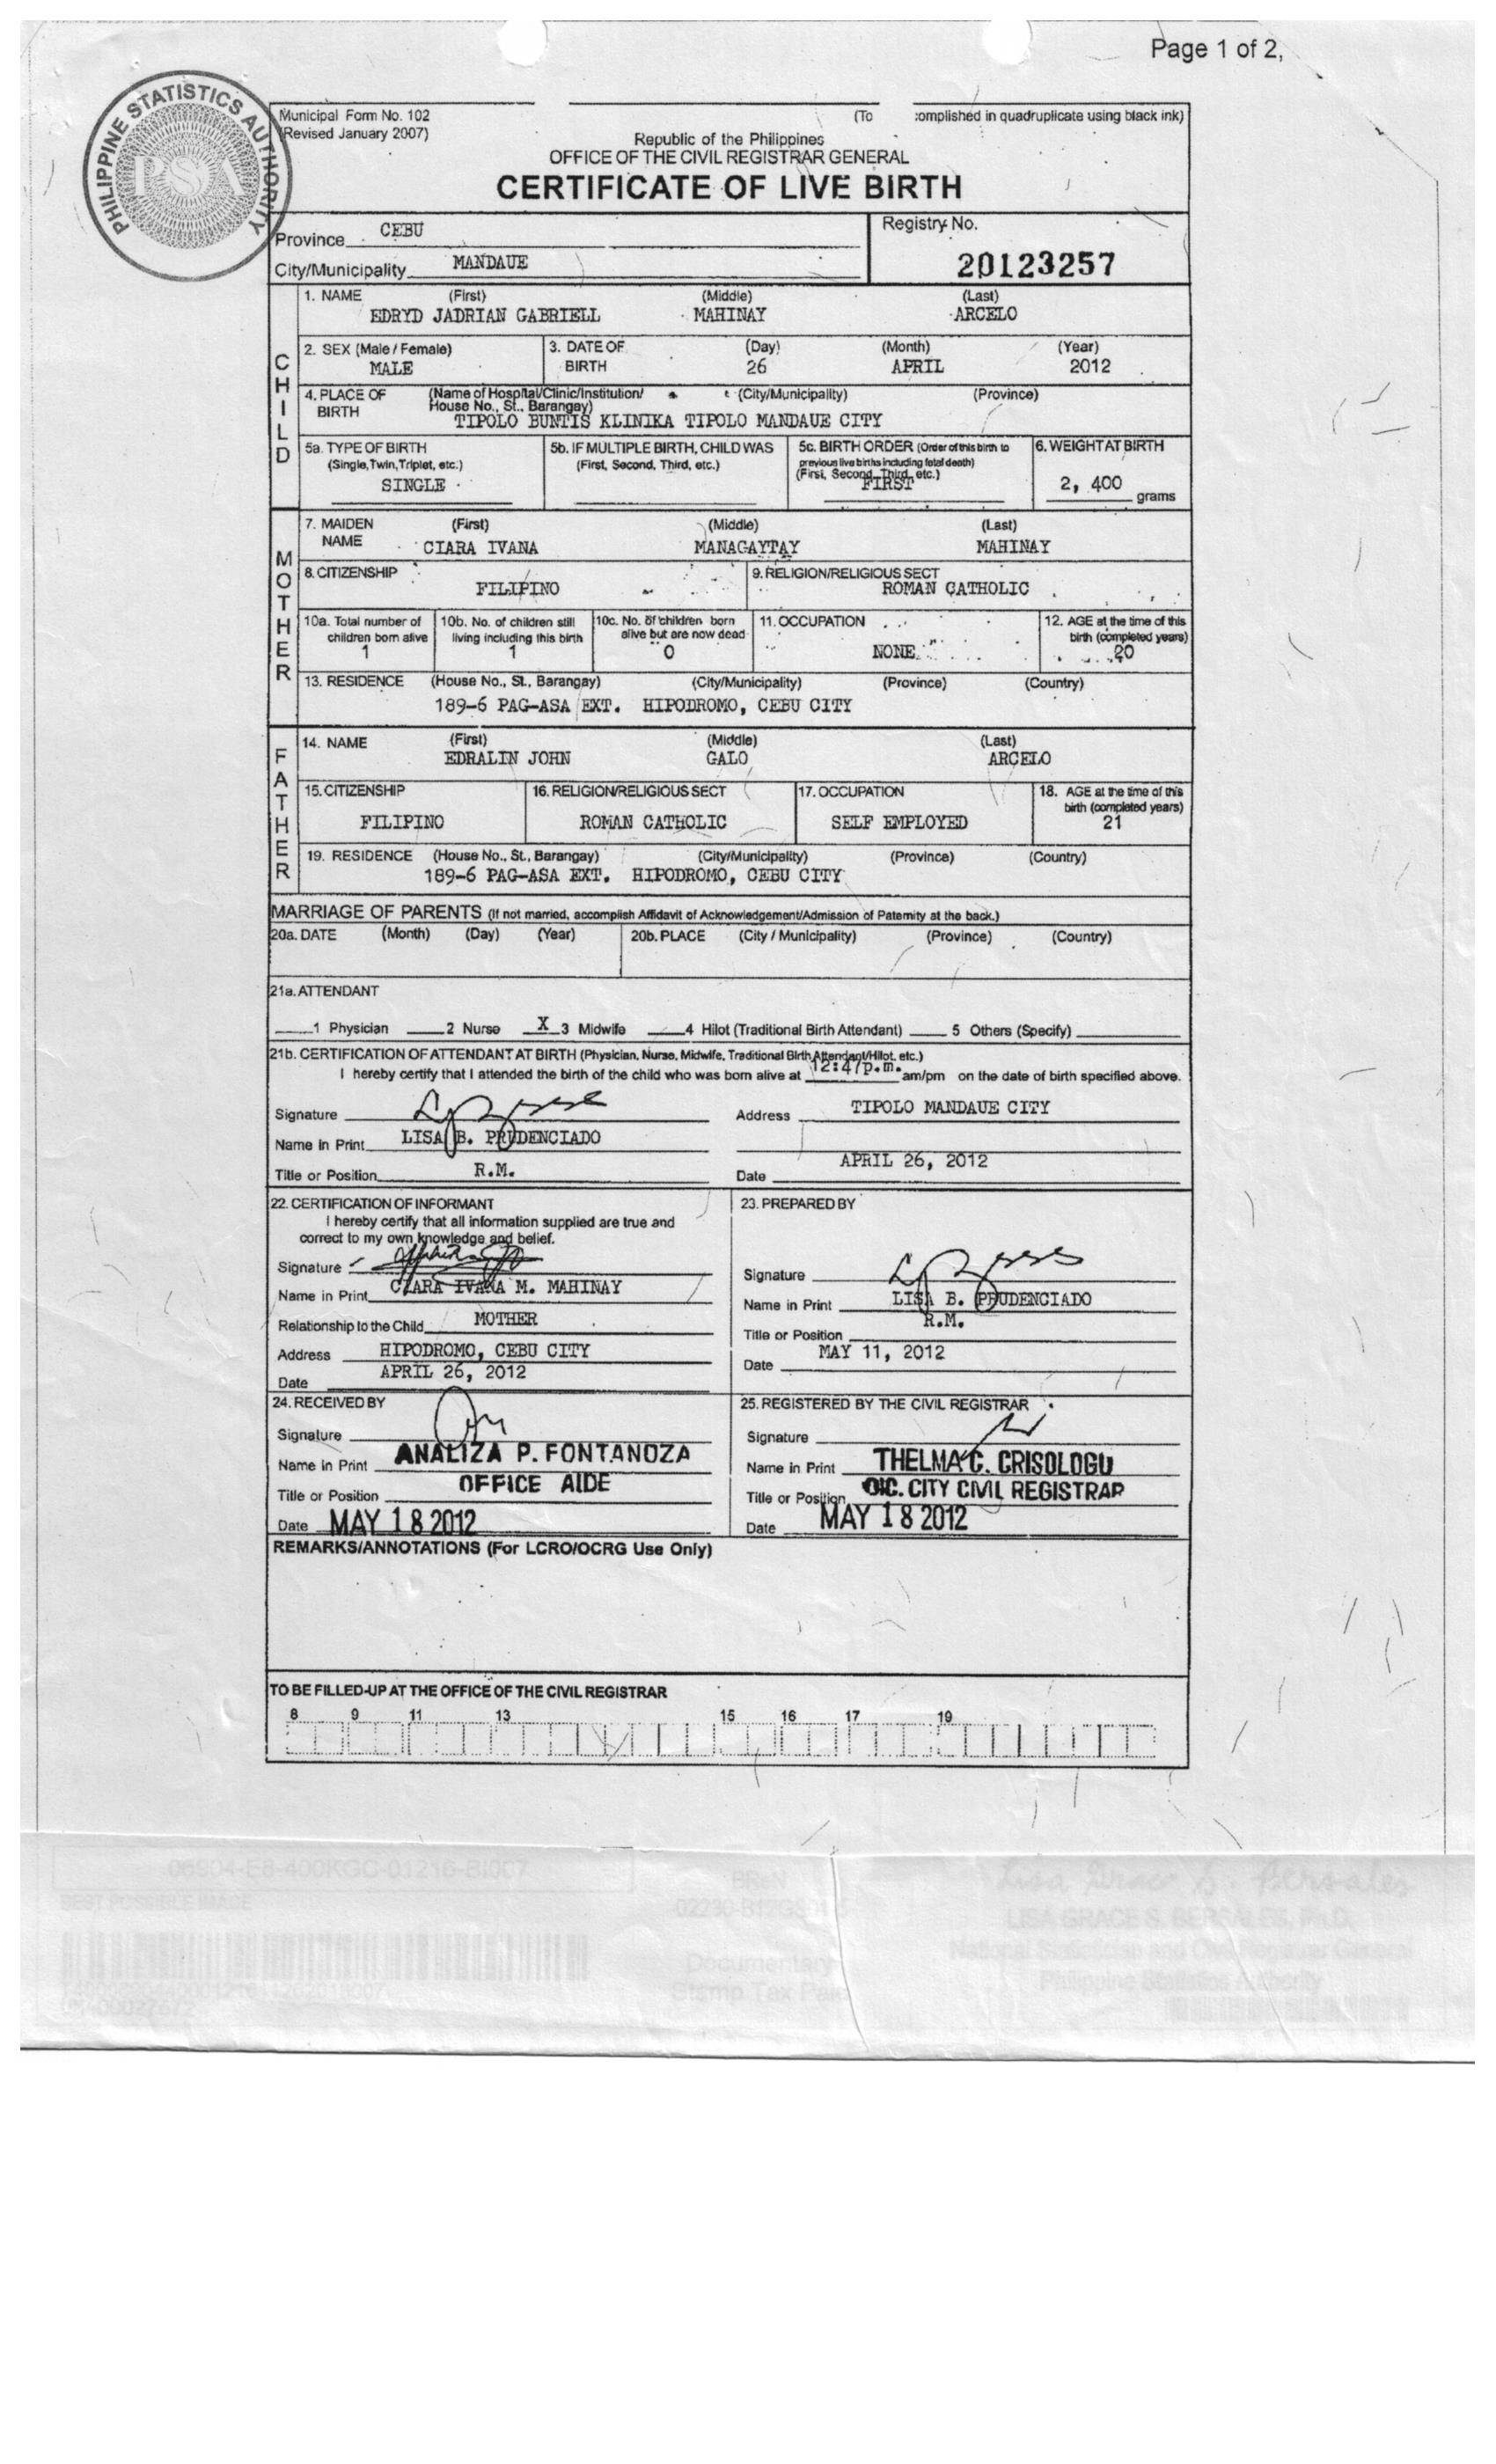 Page 1 of 2,
PHILIPPINE STATISTICS AUTHORITY
PSA
Municipal Form No. 102 (To complished in quadruplicate using black ink)
(Revised January 2007)
Republic of the Philippines
OFFICE OF THE CIVIL REGISTRAR GENERAL
CERTIFICATE OF LIVE BIRTH
Province CEBU Registry No.
City/Municipality MANDAUE 20123257
CHILD
1. NAME (First) (Middle) (Last)
EDRYD JADRIAN GABRIELL MAHINAY ARCELO
2. SEX (Male / Female) 3. DATE OF BIRTH (Day) (Month) (Year)
MALE 26 APRIL 2012
4. PLACE OF BIRTH (Name of Hospital/Clinic/Institution/ House No., St., Barangay) (City/Municipality) (Province)
TIPOLO BUNTIS KLINIKA TIPOLO MANDAUE CITY
5a. TYPE OF BIRTH (Single, Twin, Triplet, etc.) 5b. IF MULTIPLE BIRTH, CHILD WAS (First, Second, Third, etc.) 5c. BIRTH ORDER (Order of this birth to previous live births including fetal death) (First, Second, Third, etc.) 6. WEIGHT AT BIRTH
SINGLE FIRST 2, 400 grams
MOTHER
7. MAIDEN NAME (First) (Middle) (Last)
CIARA IVANA MANAGAYTAY MAHINAY
8. CITIZENSHIP 9. RELIGION/RELIGIOUS SECT
FILIPINO ROMAN CATHOLIC
10a. Total number of children born alive 10b. No. of children still living including this birth 10c. No. of children born alive but are now dead 11. OCCUPATION 12. AGE at the time of this birth (completed years)
1 1 0 NONE 20
13. RESIDENCE (House No., St., Barangay) (City/Municipality) (Province) (Country)
189-6 PAG-ASA EXT. HIPODROMO, CEBU CITY
FATHER
14. NAME (First) (Middle) (Last)
EDRALIN JOHN GALO ARCELO
15. CITIZENSHIP 16. RELIGION/RELIGIOUS SECT 17. OCCUPATION 18. AGE at the time of this birth (completed years)
FILIPINO ROMAN CATHOLIC SELF EMPLOYED 21
19. RESIDENCE (House No., St., Barangay) (City/Municipality) (Province) (Country)
189-6 PAG-ASA EXT. HIPODROMO, CEBU CITY
MARRIAGE OF PARENTS (If not married, accomplish Affidavit of Acknowledgement/Admission of Paternity at the back.)
20a. DATE (Month) (Day) (Year) 20b. PLACE (City / Municipality) (Province) (Country)
21a. ATTENDANT
1 Physician 2 Nurse X 3 Midwife 4 Hilot (Traditional Birth Attendant) 5 Others (Specify)
21b. CERTIFICATION OF ATTENDANT AT BIRTH (Physician, Nurse, Midwife, Traditional Birth Attendant/Hilot, etc.)
I hereby certify that I attended the birth of the child who was born alive at 12:47p.m. am/pm on the date of birth specified above.
Signature Address TIPOLO MANDAUE CITY
Name in Print LISA B. PRUDENCIADO
Title or Position R.M. Date APRIL 26, 2012
22. CERTIFICATION OF INFORMANT
I hereby certify that all information supplied are true and
correct to my own knowledge and belief.
Signature
Name in Print CIARA IVANA M. MAHINAY
Relationship to the Child MOTHER
Address HIPODROMO, CEBU CITY
Date APRIL 26, 2012
23. PREPARED BY
Signature
Name in Print LISA B. PRUDENCIADO
Title or Position R.M.
Date MAY 11, 2012
24. RECEIVED BY
Signature
Name in Print ANALIZA P. FONTANOZA
Title or Position OFFICE AIDE
Date MAY 18 2012
25. REGISTERED BY THE CIVIL REGISTRAR
Signature
Name in Print THELMA C. CRISOLOGO
Title or Position OIC. CITY CIVIL REGISTRAR
Date MAY 18 2012
REMARKS/ANNOTATIONS (For LCRO/OCRG Use Only)
TO BE FILLED-UP AT THE OFFICE OF THE CIVIL REGISTRAR
8 9 11 13 15 16 17 19
06904-E8-400KGC-01216-BI007
BEST POSSIBLE IMAGE
BReN
Documentary
Stamp Tax Paid
LISA GRACE S. BERSALES, Ph.D.
National Statistician and Civil Registrar General
Philippine Statistics Authority